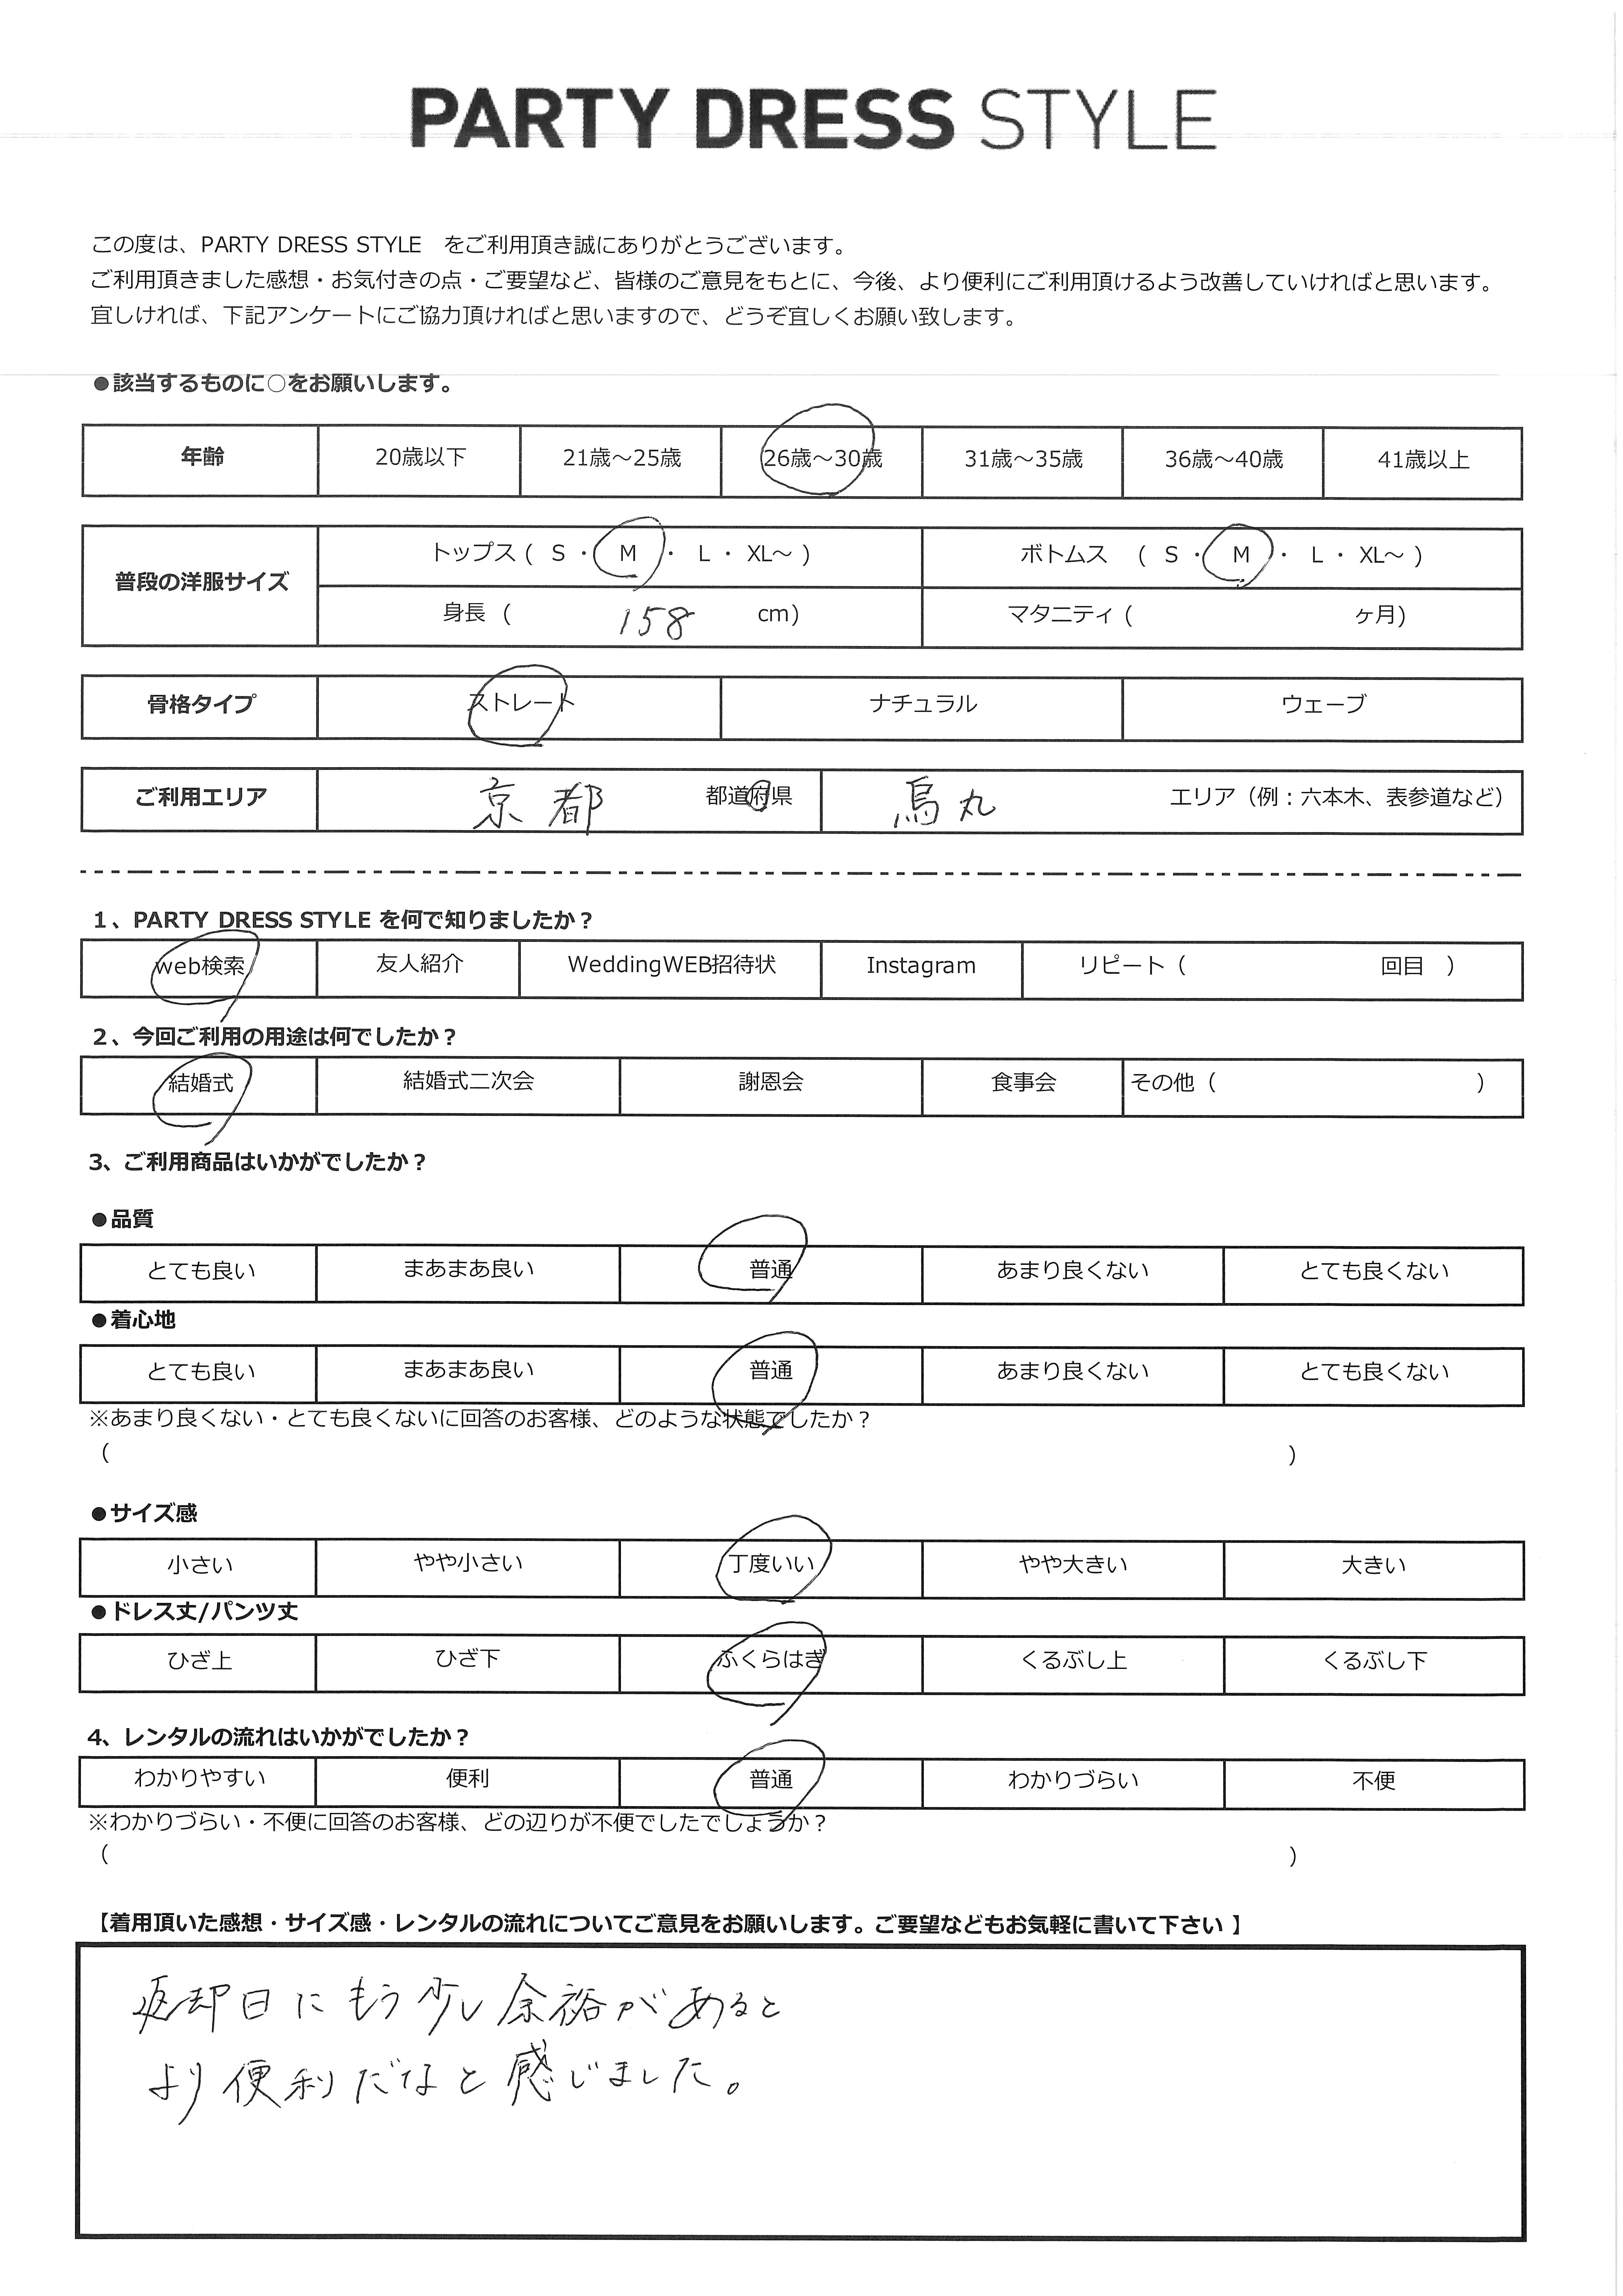 PARTY DRESS STYLE
この度は、PARTY DRESS STYLE　をご利用頂き誠にありがとうございます。
ご利用頂きました感想・お気付きの点・ご要望など、皆様のご意見をもとに、今後、より便利にご利用頂けるよう改善していければと思います。
宜しければ、下記アンケートにご協力頂ければと思いますので、どうぞ宜しくお願い致します。
●該当するものに○をお願いします。
年齢 20歳以下 21歳～25歳 26歳～30歳 31歳～35歳 36歳～40歳 41歳以上
普段の洋服サイズ トップス ( S ・ M ・ L ・ XL～ ) ボトムス ( S ・ M ・ L ・ XL～ )
身長 ( 158 cm) マタニティ ( ヶ月)
骨格タイプ ストレート ナチュラル ウェーブ
ご利用エリア 京都 都道府県 烏丸 エリア（例：六本木、表参道など）
1、PARTY DRESS STYLE を何で知りましたか？
web検索 友人紹介 WeddingWEB招待状 Instagram リピート（ 回目 ）
2、今回ご利用の用途は何でしたか？
結婚式 結婚式二次会 謝恩会 食事会 その他（ ）
3、ご利用商品はいかがでしたか？
●品質
とても良い まあまあ良い 普通 あまり良くない とても良くない
●着心地
とても良い まあまあ良い 普通 あまり良くない とても良くない
※あまり良くない・とても良くないに回答のお客様、どのような状態でしたか？
（ ）
●サイズ感
小さい やや小さい 丁度いい やや大きい 大きい
●ドレス丈/パンツ丈
ひざ上 ひざ下 ふくらはぎ くるぶし上 くるぶし下
4、レンタルの流れはいかがでしたか？
わかりやすい 便利 普通 わかりづらい 不便
※わかりづらい・不便に回答のお客様、どの辺りが不便でしたでしょうか？
（ ）
【着用頂いた感想・サイズ感・レンタルの流れについてご意見をお願いします。ご要望などもお気軽に書いて下さい 】
返却日にもう少し余裕があると
より便利だなと感じました。